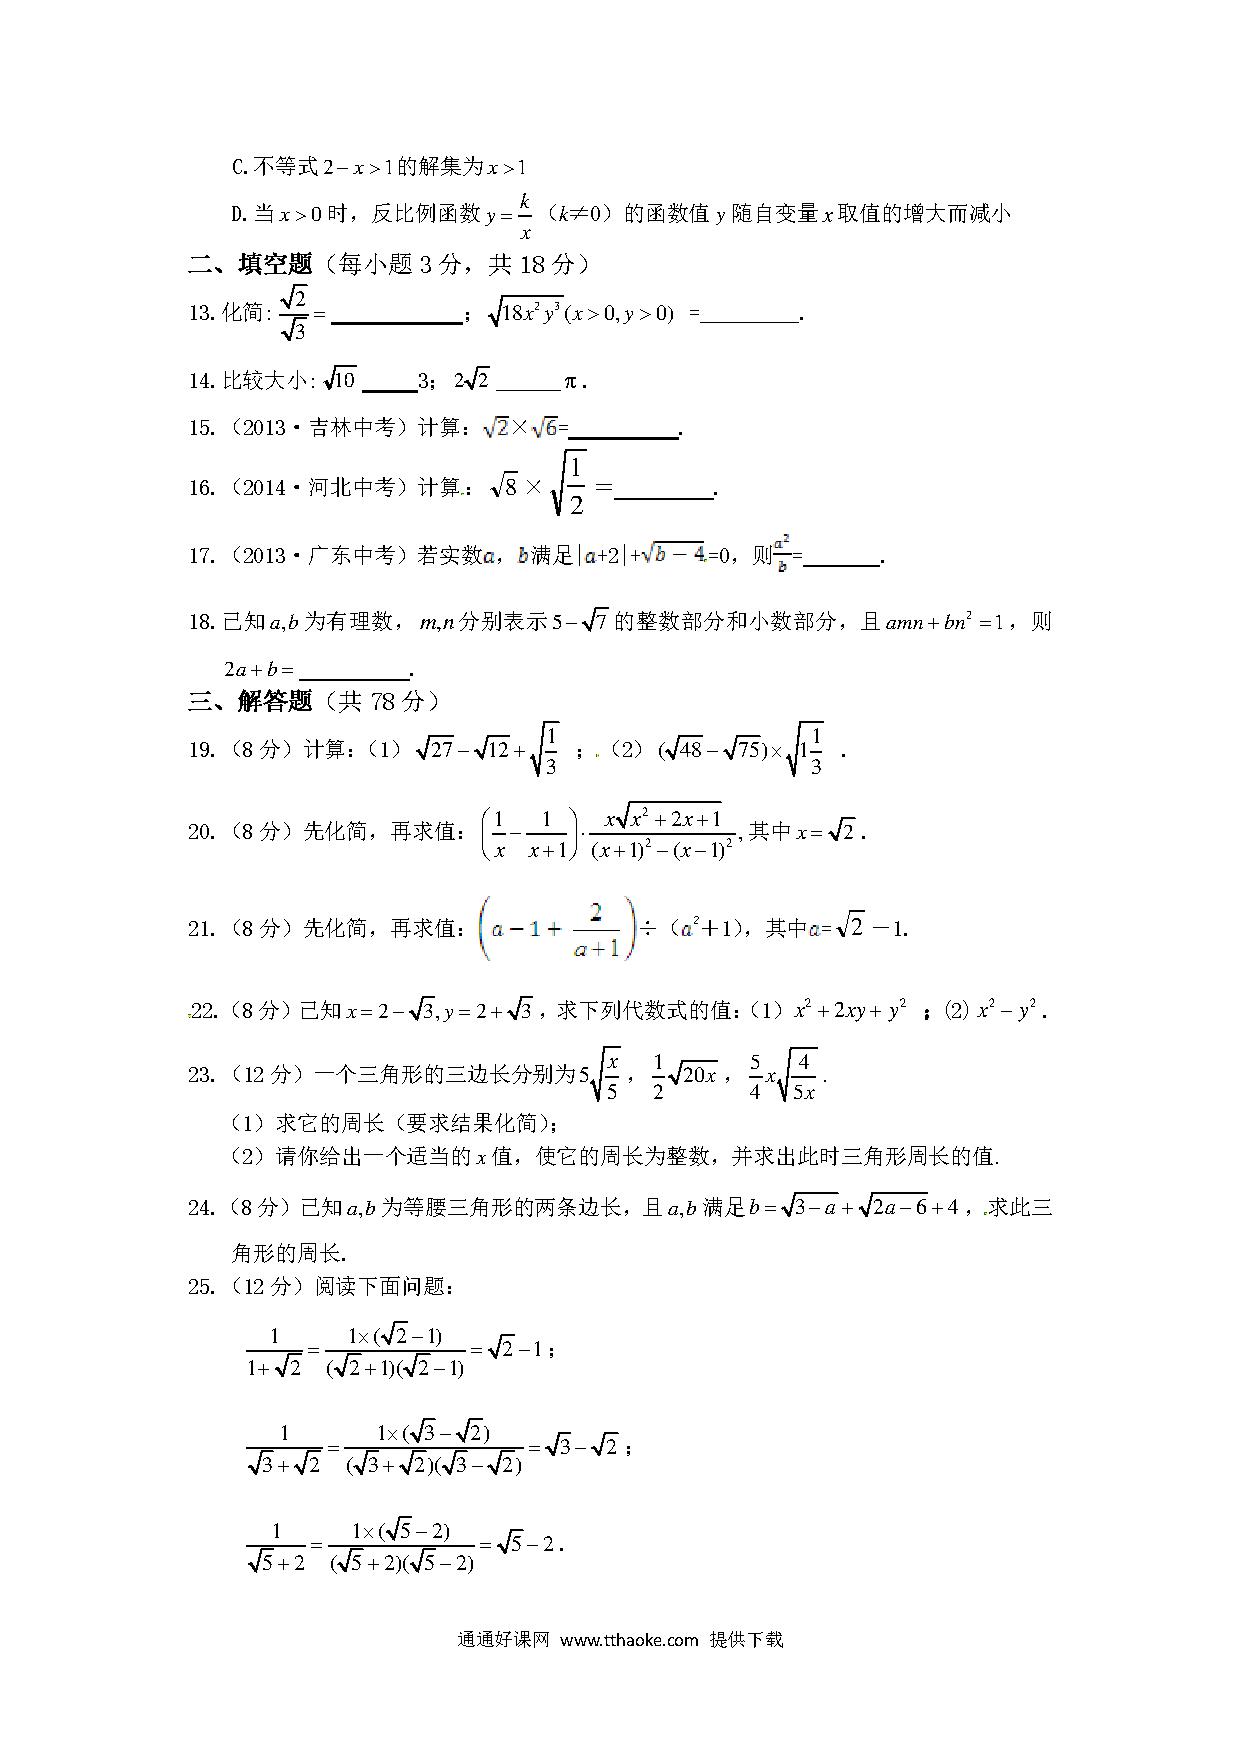 C.不等式2－x＞1的解集为x＞1
D.当x＞0时，反比例函数y＝k/x（k≠0）的函数值y随自变量x取值的增大而减小
二、填空题（每小题3分，共18分）
13.化简：√2/√3＝____________； √(18x²y³)(x＞0,y＞0) =_________.
14.比较大小：√10 _____3；2√2 ______π.
15.（2013·吉林中考）计算：√2×√6=__________.
16.（2014·河北中考）计算：√8×√(1/2)＝_________.
17.（2013·广东中考）若实数a，b满足|a+2|+√(b－4)=0，则a²/b=_______.
18.已知a,b为有理数，m,n分别表示5－√7的整数部分和小数部分，且amn＋bn²＝1，则
2a＋b＝__________.
三、解答题（共78分）
19.（8分）计算：（1）√27－√12＋√(1/3)；（2）(√48－√75)×√(1 1/3).
20.（8分）先化简，再求值：(1/x－1/(x＋1))·x√(x²＋2x＋1)/((x＋1)²－(x－1)²),其中x＝√2.
21.（8分）先化简，再求值：(a－1＋2/(a＋1))÷（a²＋1），其中a=√2－1.
22.（8分）已知x＝2－√3,y＝2＋√3，求下列代数式的值：（1）x²＋2xy＋y² ；(2)x²－y².
23.（12分）一个三角形的三边长分别为5√(x/5)，1/2√(20x)，5/4x√(4/(5x)).
（1）求它的周长（要求结果化简）；
（2）请你给出一个适当的x值，使它的周长为整数，并求出此时三角形周长的值.
24.（8分）已知a,b为等腰三角形的两条边长，且a,b满足b＝√(3－a)＋√(2a－6)＋4，求此三
角形的周长.
25.（12分）阅读下面问题：
1/(1＋√2)＝1×(√2－1)/((√2＋1)(√2－1))＝√2－1；
1/(√3＋√2)＝1×(√3－√2)/((√3＋√2)(√3－√2))＝√3－√2；
1/(√5＋2)＝1×(√5－2)/((√5＋2)(√5－2))＝√5－2.
通通好课网 www.tthaoke.com 提供下载